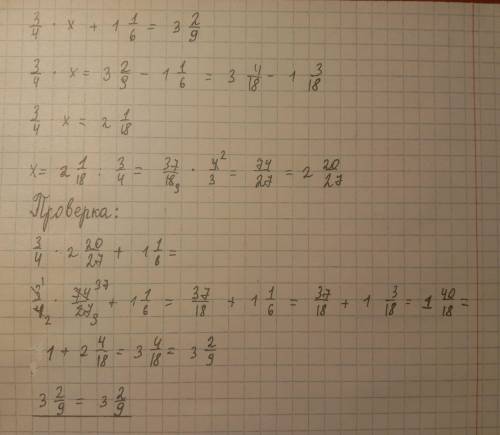 3/4 · x + 1 1/6 = 3 2/9
3/4 · x = 3 2/9 - 1 1/6 = 3 4/18 - 1 3/18
3/4 · x = 2 1/18
x = 2 1/18 : 3/4 = 37/18 9 · 4 2/3 = 74/27 = 2 20/27
Проверка:
3/4 · 2 20/27 + 1 1/6 =
3 1/4 2 · 74 37/27 9 + 1 1/6 = 37/18 + 1 1/6 = 37/18 + 1 3/18 = 1 40/18 =
1 + 2 4/18 = 3 4/18 = 3 2/9
3 2/9 = 3 2/9